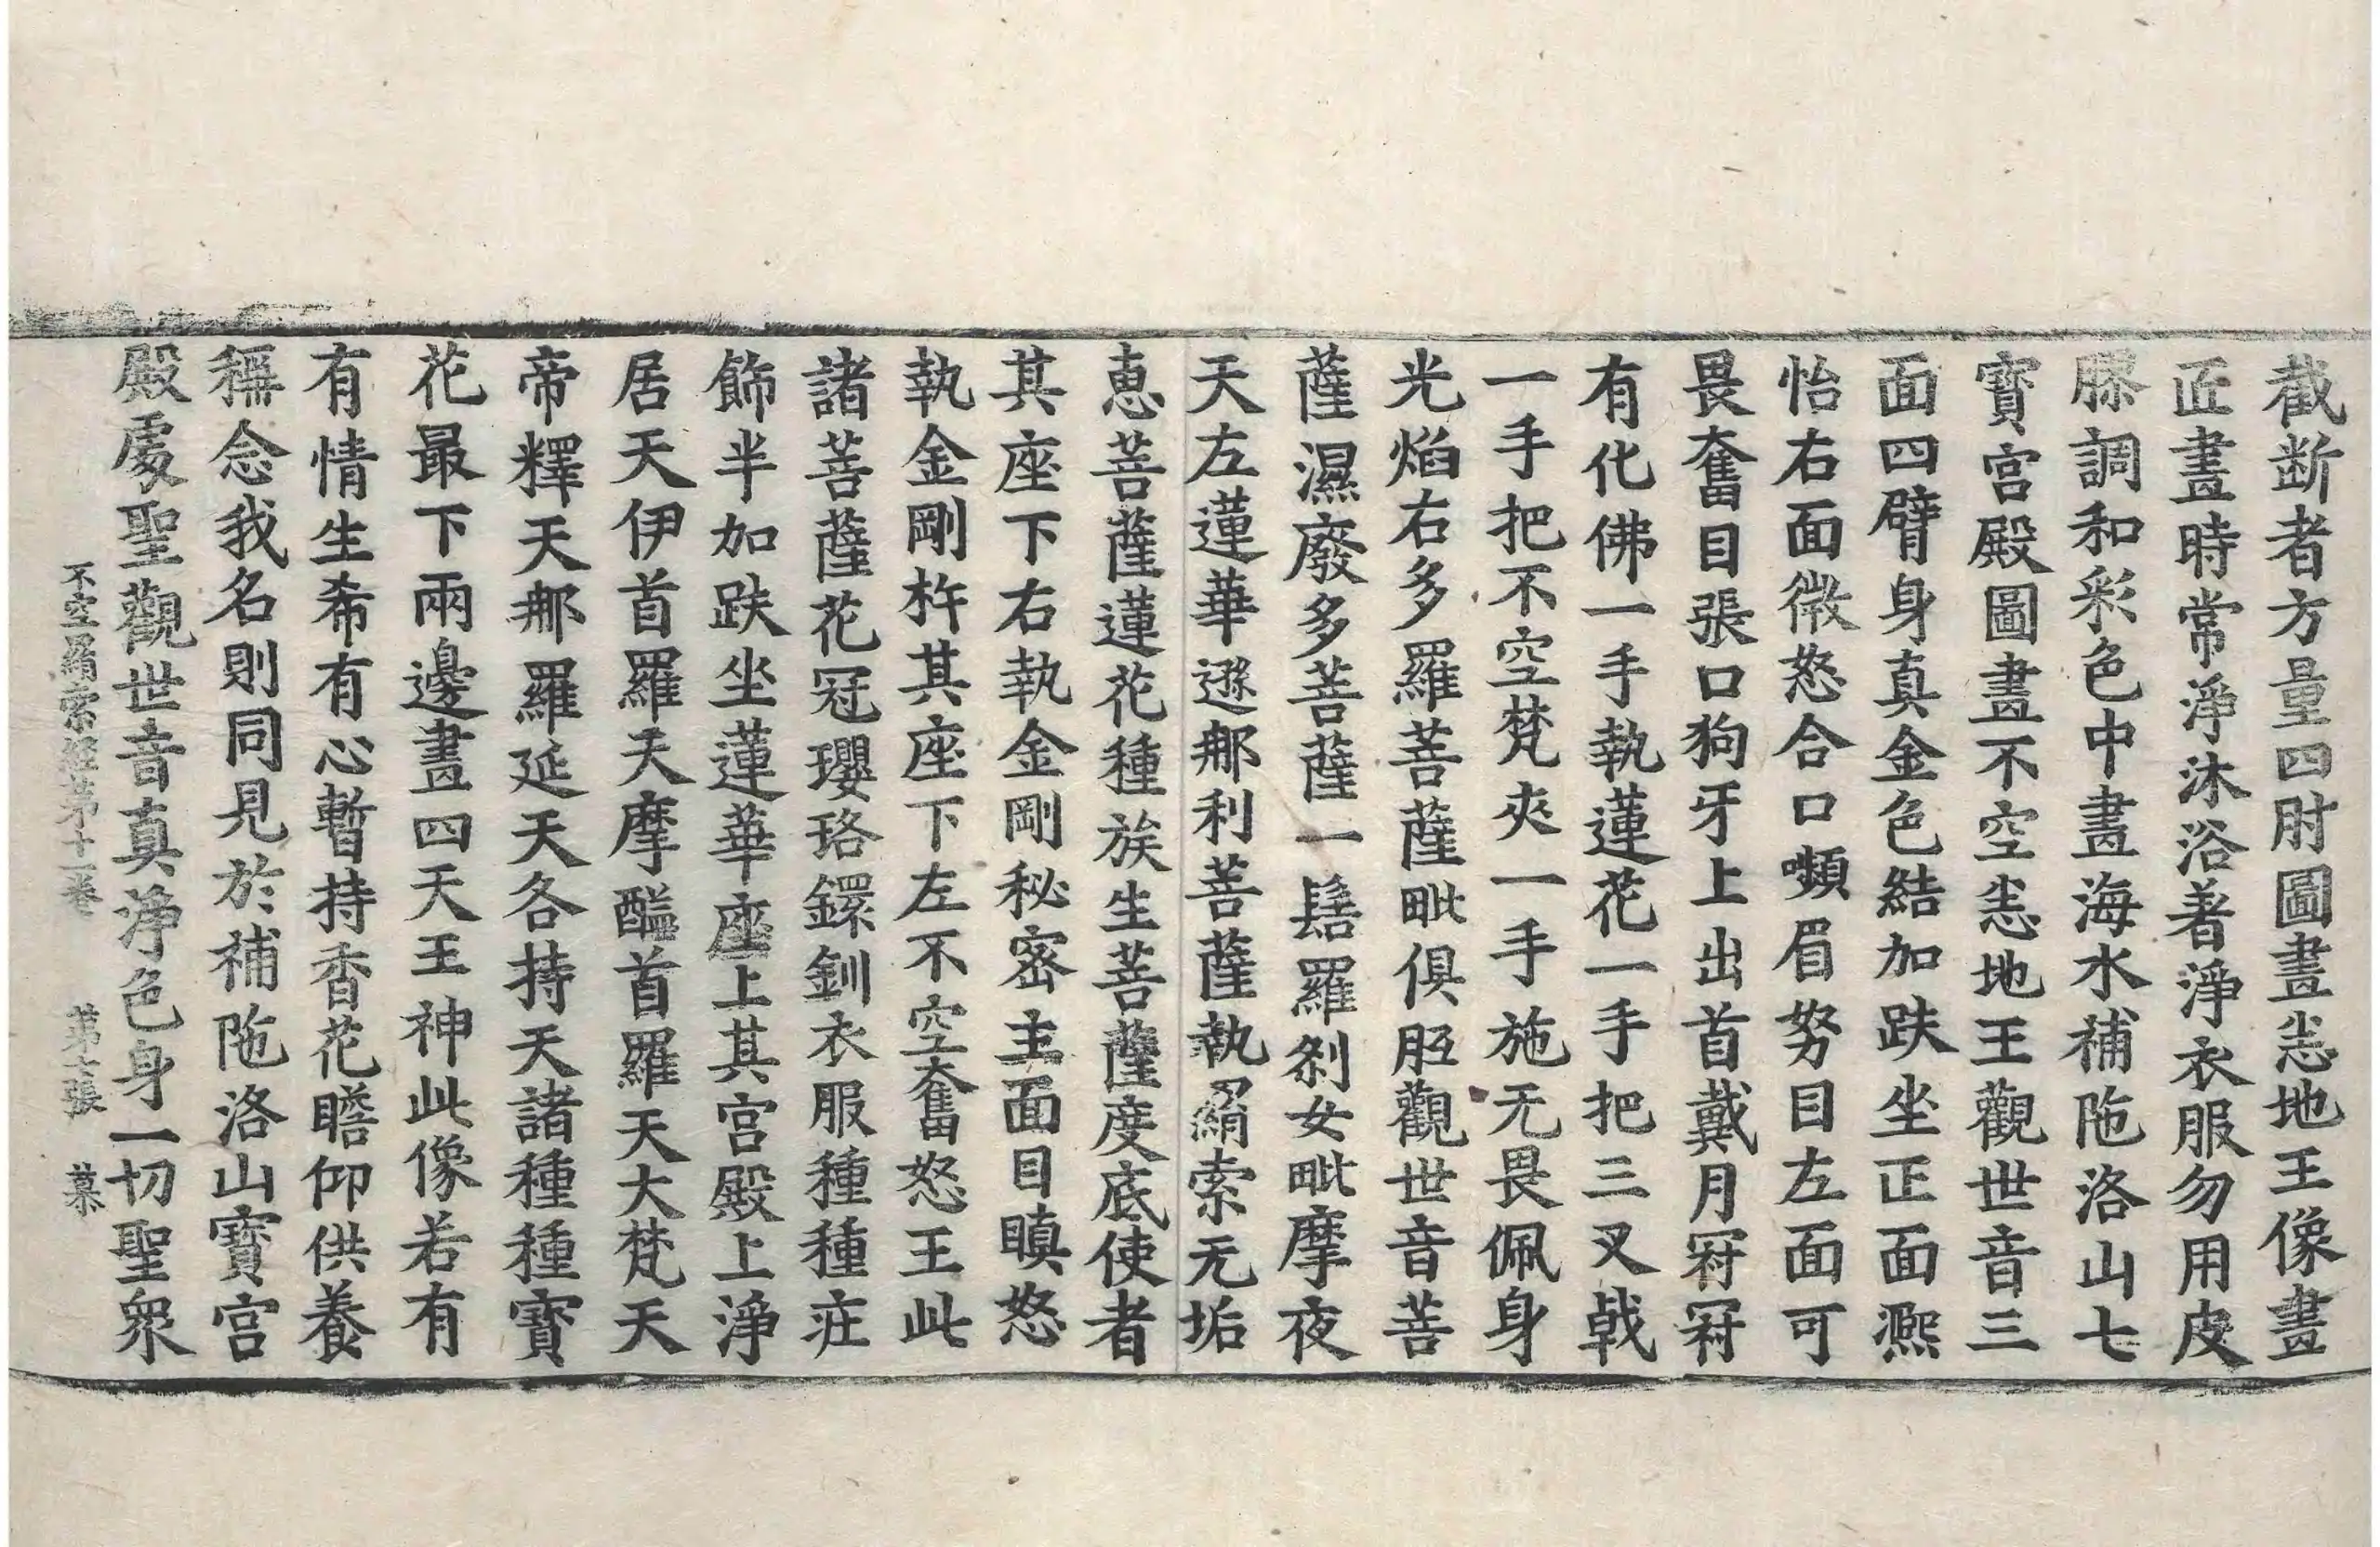 截断者方量四肘圖畫恚地王像畫
匠畫時常淨沐浴著淨衣服勿用皮
膠調和彩色中畫海水補陁洛山七
寳宮殿圖畫不空恚地王觀世音三
面四臂身真金色結加趺坐正面熈
怡右面微怒合口嚬眉努目左面可
畏奮目張口狗牙上出首戴月冠冠
有化佛一手執蓮花一手把三叉戟
一手把不空梵夾一手施无畏佩身
光焰右多羅菩薩毗俱胝觀世音菩
薩濕廢多菩薩一髻羅剎女毗摩夜
天左蓮華遜那利菩薩執羂索无垢
恵菩薩蓮花種族生菩薩度底使者
其座下右執金剛秘密主面目瞋怒
執金剛杵其座下左不空奮怒王此
諸菩薩花冠瓔珞鐶釧衣服種種莊
飾半加趺坐蓮華座上其宮殿上淨
居天伊首羅天摩醯首羅天大梵天
帝釋天那羅延天各持天諸種種寳
花最下兩邊畫四天王神此像若有
有情生希有心暫持香花瞻仰供養
稱念我名則同見於補陁洛山寳宮
殿處聖觀世音真淨色身一切聖衆
不空羂索經第十一卷 第七張 慕